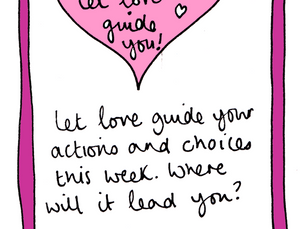 Let love
guide
you!
Let love guide your
actions and choices
this week. Where
will it lead you?